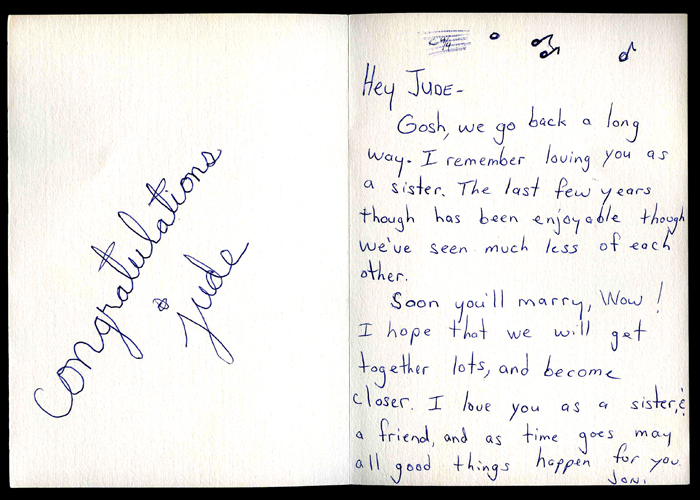 Congratulations
Jude
Hey JUDE-
Gosh, we go back a long
way. I remember loving you as
a sister. The last few years
though has been enjoyable though
we've seen much less of each
other.
Soon you'll marry, Wow!
I hope that we will get
together lots, and become
closer. I love you as a sister, &
a friend, and as time goes may
all good things happen for you.
JONI